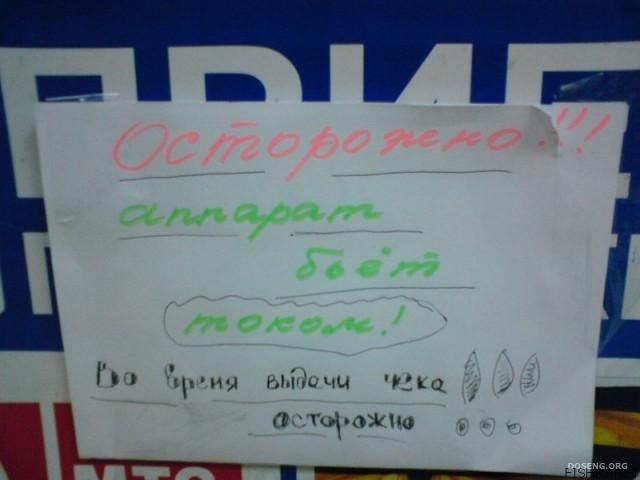 ПРИЕ
Осторожно!!!
аппарат
бьёт
током!
Во время выдачи чека
осторожно !!!
МТС
DOSENG.ORG